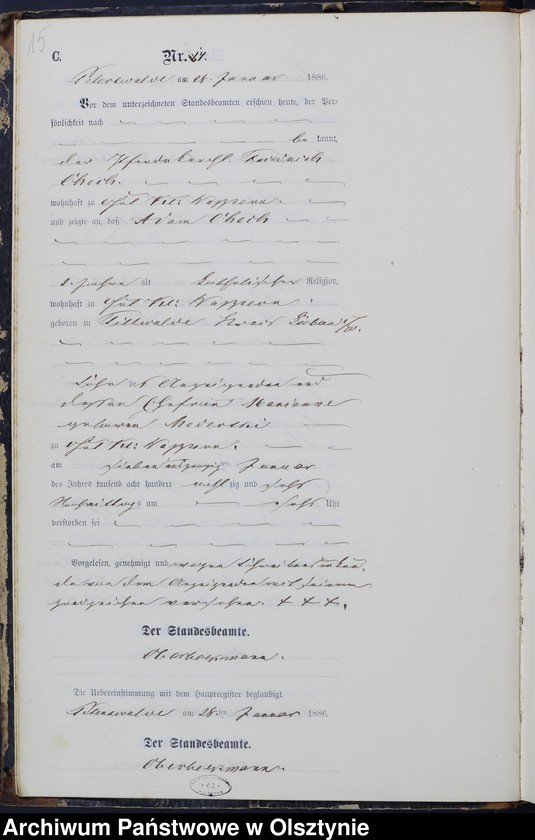 15
C. Nr. 14.
am 28. Januar 1886.
Vor dem unterzeichneten Standesbeamten erschien heute, der Per-
sönlichkeit nach
be kannt,
der Pferdeknecht Friedrich
wohnhaft zu Gut Kl:
und zeigte an, daß Adam
2 Jahre alt katholischer Religion,
wohnhaft zu Gut Kl:
geboren zu Tillwalde Kreis Löbau
Sohn des Anzeigenden und
dessen Ehefrau Marianne
geborenen
zu Gut Kl:
am sieben und zwanzigsten Januar
des Jahres tausend acht hundert achtzig und sechs
Nachmittags um sechs Uhr
verstorben sei
Vorgelesen, genehmigt und wegen Schreibensunkun-
de von dem Anzeigenden mit seinem
Handzeichen versehen. + + +.
Der Standesbeamte.
Die Uebereinstimmung mit dem Hauptregister beglaubigt.
am 28ten Januar 1886.
Der Standesbeamte.
Archiwum Państwowe w Olsztynie